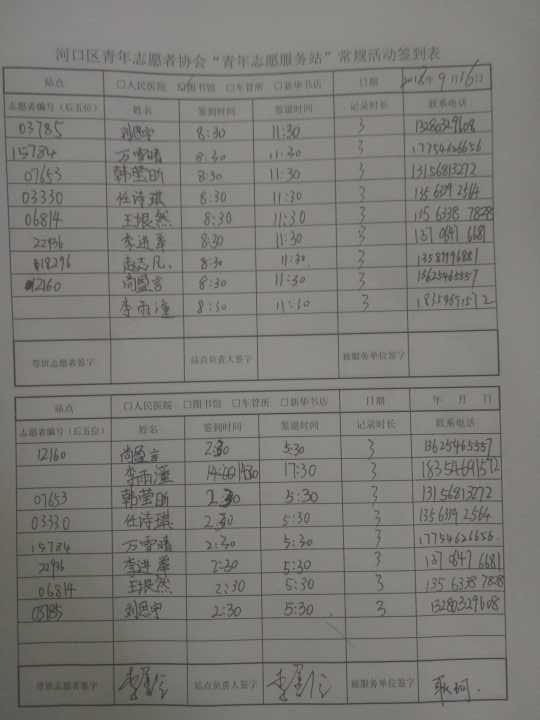 河口区青年志愿者协会“青年志愿服务站”常规活动签到表
站点 □人民医院 ☑图书馆 □车管所 □新华书店 日期 2018年9月16日
志愿者编号（后五位） 姓名 签到时间 签退时间 记录时长 联系电话
03785 刘思宁 8:30 11:30 3 13280329608
15784 万雪晴 8:30 11:30 3 17754626656
07653 韩莹昕 8:30 11:30 3 13156813272
03330 任诗琪 8:30 11:30 3 135 6319 2564
06814 王垠然 8:30 11:30 3 135 6338 7828
22936 李进举 8:30 11:30 3 137 0647 6681
18296 赵志凡 8:30 11:30 3
12160 尚盈言 8:30 11:30 3 13625465557
李雨潼 8:30 11:30 3 18354691572
带班志愿者签字 站点负责人签字 被服务单位签字
站点 □人民医院 □图书馆 □车管所 □新华书店 日期 年 月 日
志愿者编号（后五位） 姓名 签到时间 签退时间 记录时长 联系电话
12160 尚盈言 2:30 5:30 3 13625465557
李雨潼 14:30 17:30 3 18354691572
07653 韩莹昕 2:30 5:30 3 13156813272
03330 任诗琪 2:30 5:30 3 135 6319 2564
15784 万雪晴 2:30 5:30 3 17754626656
22936 李进举 2:30 5:30 3 137 0647 6681
06814 王垠然 2:30 5:30 3 135 6338 7828
03785 刘思宁 2:30 5:30 3 13280329608
带班志愿者签字 站点负责人签字 被服务单位签字